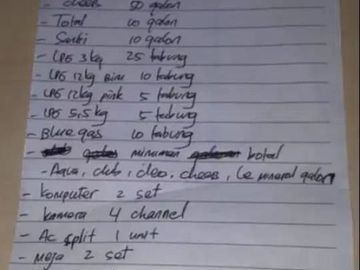 - cheers 50 galon
- Total 10 galon
- Sanki 10 galon
- LPG 3 kg 25 tabung
- LPG 12 kg Biru 10 tabung
- LPG 12 kg pink 5 tabung
- LPG 5,5 kg 5 tabung
- Blue gas 10 tabung
- minuman botol
- Aqua, club, cleo, cheers, Le mineral galon
- komputer 2 set
- kamera 4 channel
- Ac split 1 unit
- meja 2 set